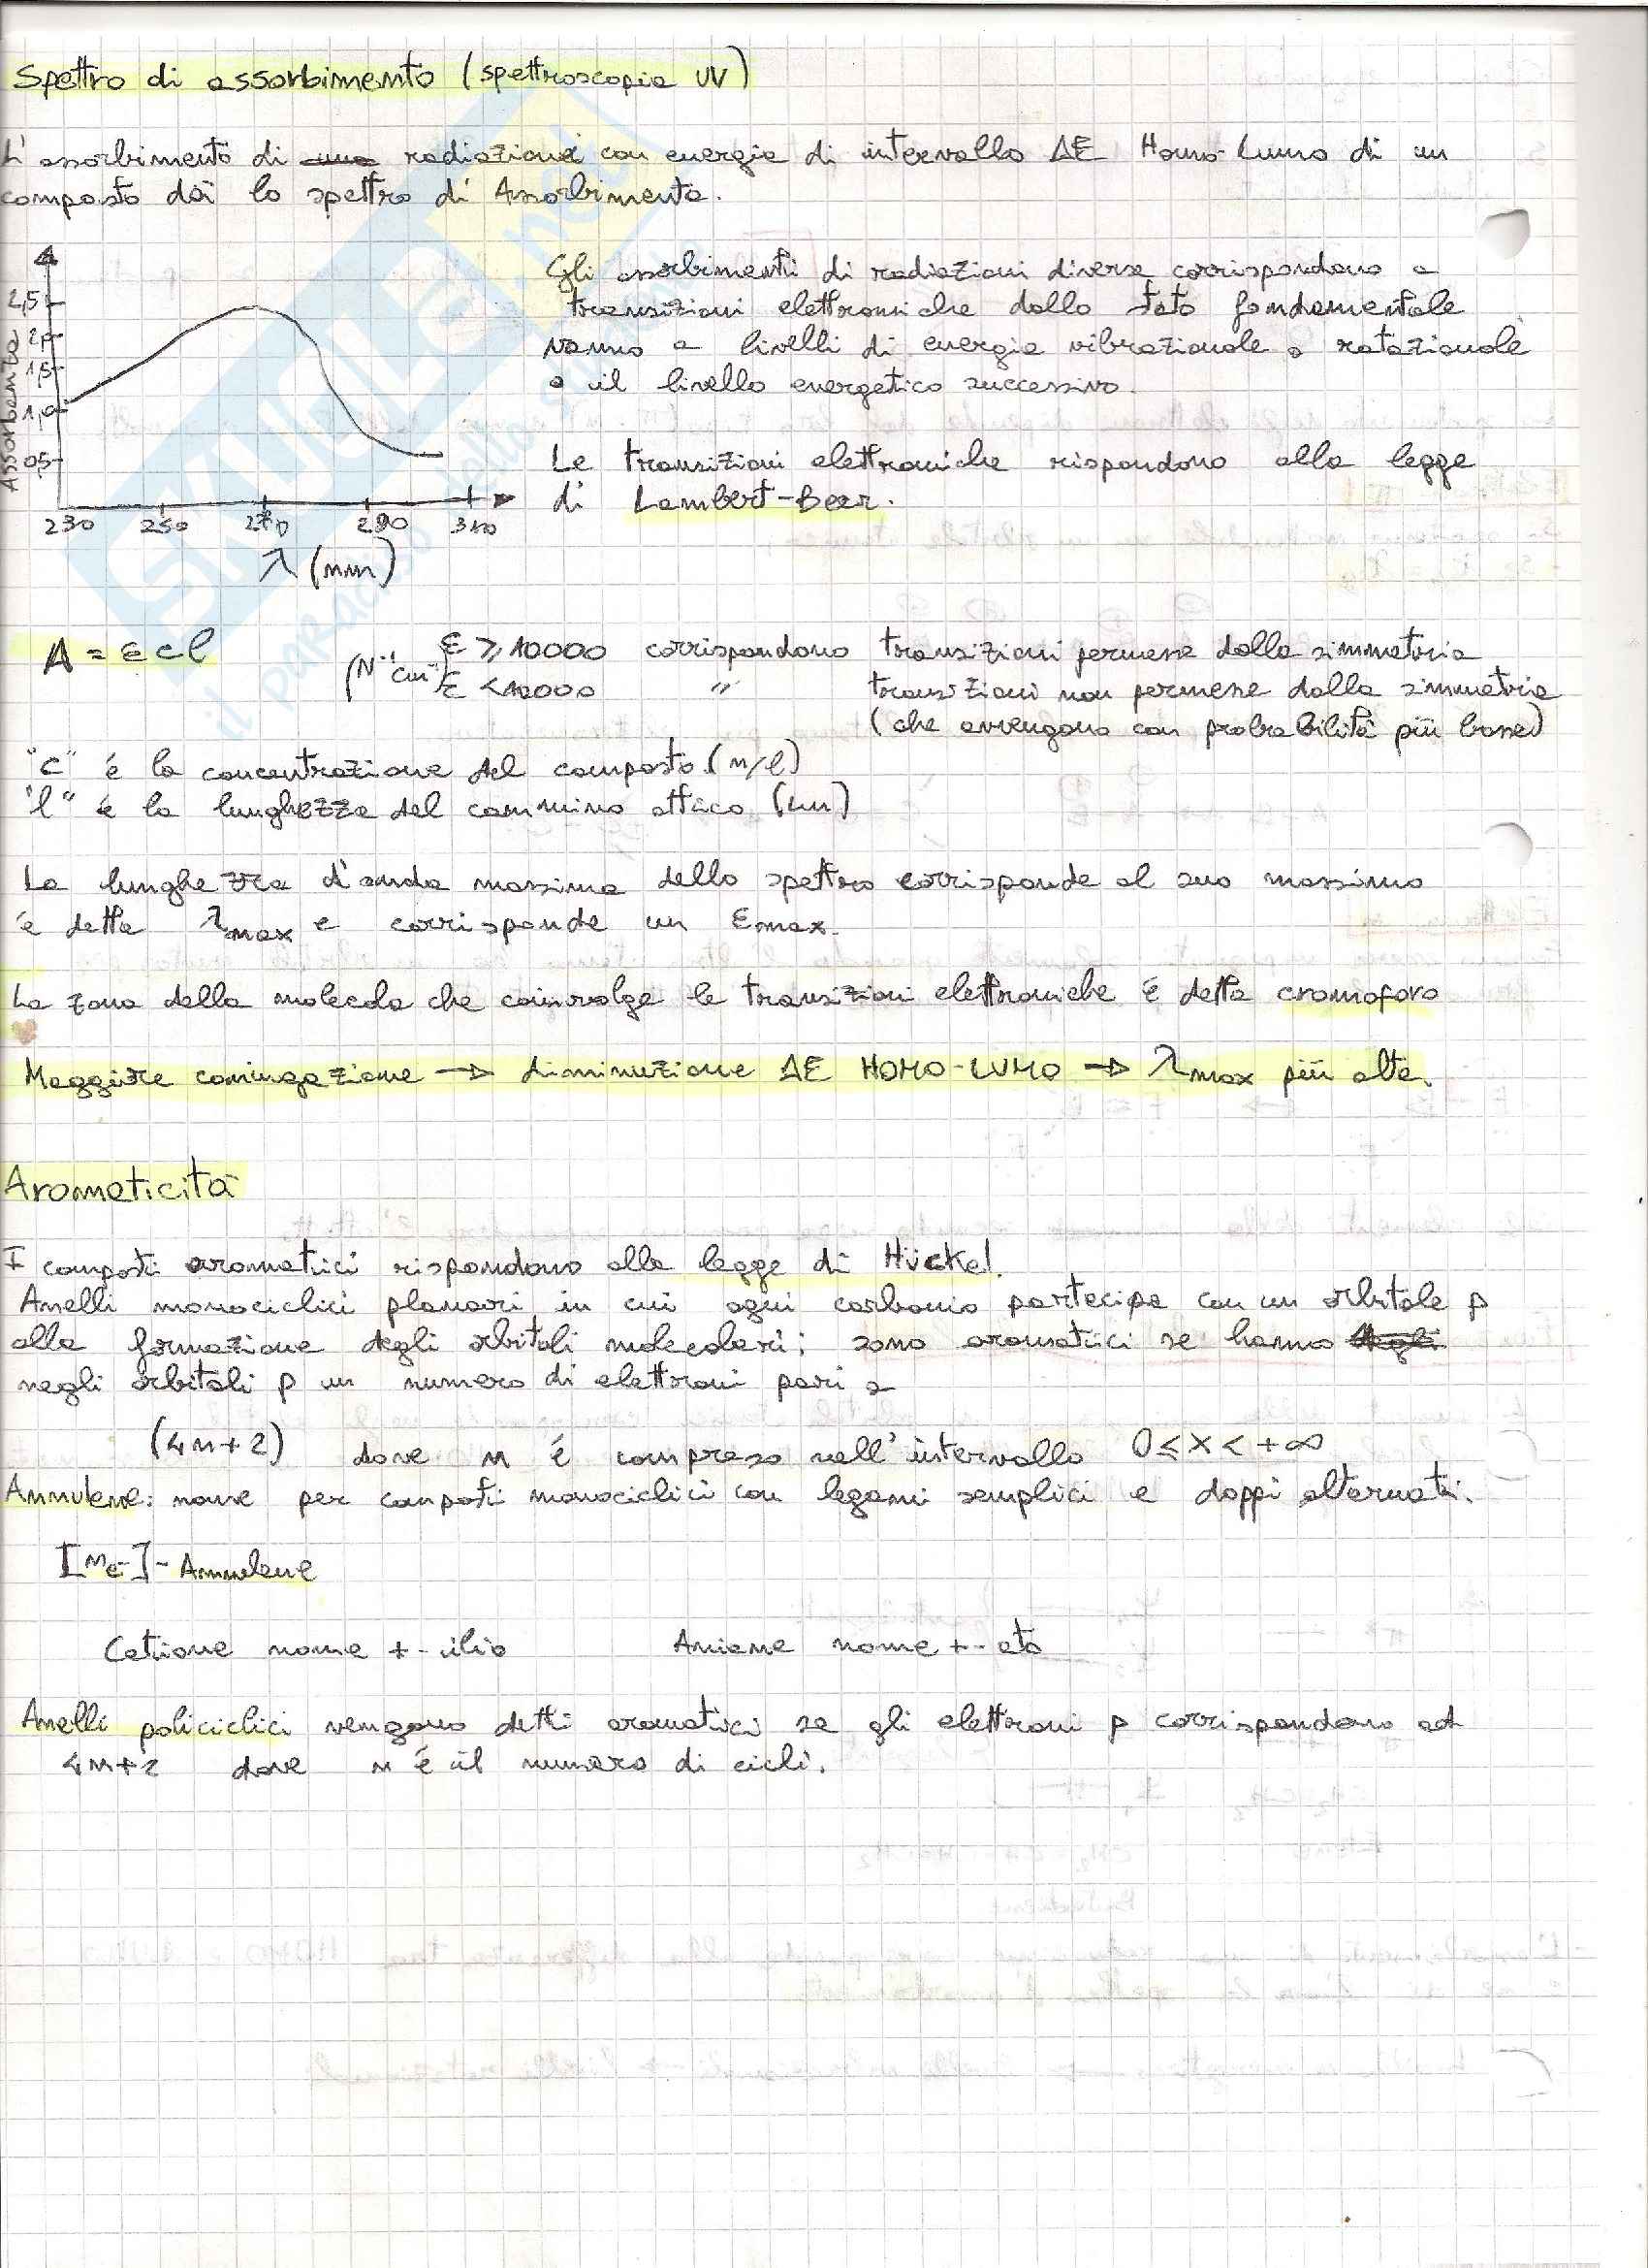 Spettro di assorbimento (spettroscopia UV)
L'assorbimento di una radiazioni con energia di intervallo ΔE Homo-Lumo di un
composto dà lo spettro di Assorbimento.
Gli assorbimenti di radiazioni diverse corrispondono a
transizioni elettroniche dallo stato fondamentale
vanno a livelli di energia vibrazionale o rotazionale
o il livello energetico successivo.
Le transizioni elettroniche rispondono alla legge
di Lambert-Beer.
Assorbenza
2,5
2,0
1,5
1,0
0,5
230 250 270 290 310
λ (nm)
A = ε c l
(M⁻¹ cm⁻¹) ε ≥ 10000 corrispondono transizioni permesse dalla simmetria
ε < 10000 " transizioni non permesse dalla simmetria
(che avvengono con probabilità più basse)
"c" é la concentrazione del composto (n/l)
"l" é la lunghezza del cammino ottico (cm)
La lunghezza d'onda massima dello spettro corrisponde al suo massimo
é detta λmax e corrisponde un εmax.
La zona della molecola che coinvolge le transizioni elettroniche é detta cromoforo
Maggiore coniugazione → diminuzione ΔE HOMO-LUMO → λmax più alta.
Aromaticità
I composti aromatici rispondono alla legge di Hückel.
Anelli monociclici planari in cui ogni carbonio partecipa con un orbitale p
alla formazione degli orbitali molecolari; sono aromatici se hanno degli
negli orbitali p un numero di elettroni pari a
(4n+2) dove n é compreso nell'intervallo 0≤x<+∞
Annulene: nome per composti monociclici con legami semplici e doppi alternati.
[ne-]-Annulene
Catione nome +-ilio Anione nome +-ato
Anelli policiclici vengono detti aromatici se gli elettroni p corrispondono ad
4n+2 dove n é il numero di cicli.